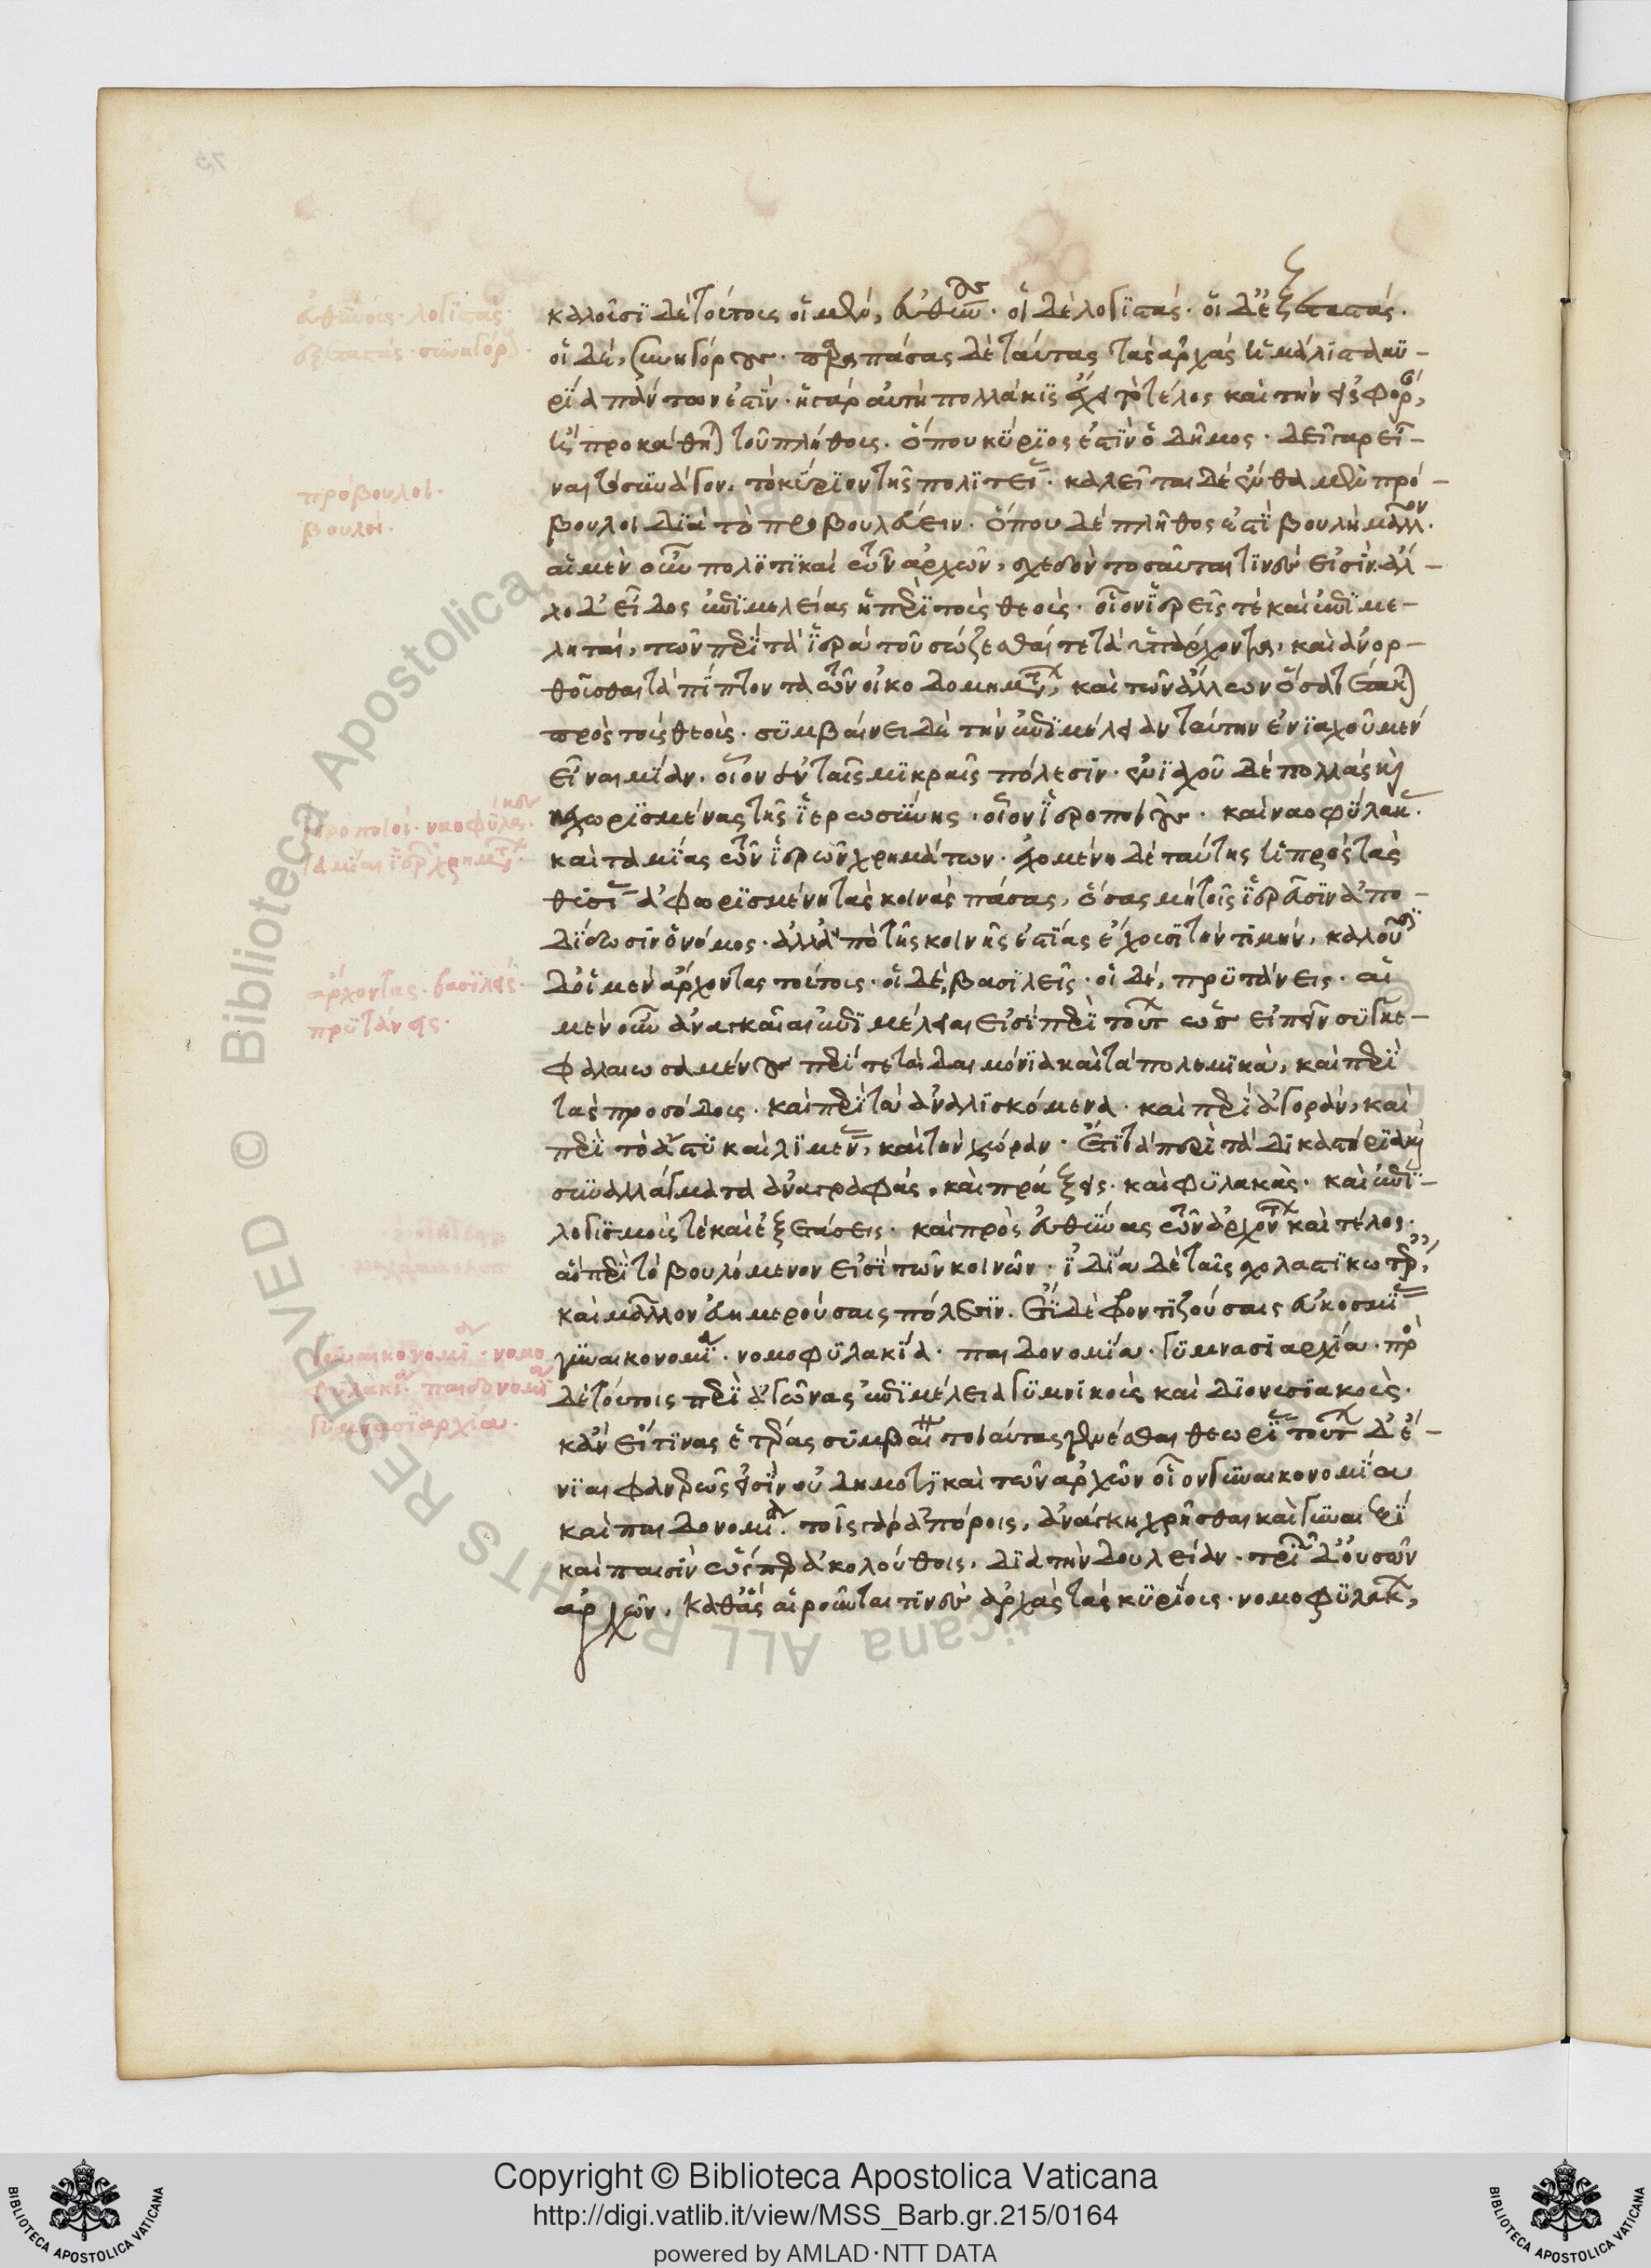 καλοῦσι δὲ τούτους οἱ μὲν, εὐθύνους· οἱ δὲ λογιστάς· οἱ δ' ἐξεταστάς·
οἱ δὲ, συνηγόρους· παρὰ πάσας δὲ ταύτας τὰς ἀρχὰς ἡ μάλιστα κυ-
ρία πάντων ἐστίν· ἡ γὰρ αὐτὴ πολλάκις ἔχει τὸ τέλος καὶ τὴν εἰσφοράν,
ἢ προκάθηται τοῦ πλήθους. ὅπου κύριός ἐστιν ὁ δῆμος· δεῖ γὰρ εἶ-
ναι τὸ συνάγον. τὸ κύριον τῆς πολιτείας· καλεῖται δὲ ἔνθα μὲν πρό-
βουλοι διὰ τὸ προβουλεύειν. ὅπου δὲ πλῆθός ἐστι βουλὴ μᾶλλον.
αἱ μὲν οὖν πολιτικαὶ τῶν ἀρχῶν, σχεδὸν τοσαῦταί τινες εἰσίν. ἄλ-
λο δ' εἶδος ἐπιμελείας ἡ περὶ τοὺς θεούς· οἷον ἱερεῖς τε καὶ ἐπιμε-
ληταὶ, τῶν περὶ τὰ ἱερὰ τοῦ σώζεσθαί τε τὰ ὑπάρχοντα, καὶ ἀνορ-
θοῦσθαι τὰ πίπτοντα τῶν οἰκοδομημάτων, καὶ τῶν ἄλλων ὅσα τέτακται
πρὸς τοὺς θεούς· συμβαίνει δὲ τὴν ἐπιμέλειαν ταύτην ἐνιαχοῦ μὲν
εἶναι μίαν. οἷον ἐν ταῖς μικραῖς πόλεσιν· ἐνιαχοῦ δὲ πολλὰς καὶ
κεχωρισμένας τῆς ἱερωσύνης· οἷον ἱεροποιοὺς· καὶ ναοφύλακας·
καὶ ταμίας τῶν ἱερῶν χρημάτων· ἐχομένη δὲ ταύτης ἡ πρὸς τὰς
θυσίας ἀφωρισμένη τὰς κοινὰς πάσας, ὅσας μὴ τοῖς ἱερεῦσιν ἀπο-
δίδωσιν ὁ νόμος· ἀλλ' ἀπὸ τῆς κοινῆς ἑστίας ἔχουσι τὴν τιμήν. καλοῦσι
δ' οἱ μὲν ἄρχοντας τούτους· οἱ δὲ, βασιλεῖς· οἱ δὲ, πρυτάνεις· αἱ
μὲν οὖν ἀναγκαῖαι ἐπιμέλειαί εἰσι περὶ τούτων ὡς εἰπεῖν συγκε-
φαλαιωσαμένους περί τε τὰ δαιμόνια καὶ τὰ πολεμικὰ, καὶ περὶ
τὰς προσόδους· καὶ περὶ τὰ ἀναλισκόμενα· καὶ περὶ ἀγορὰν, καὶ
περὶ τὸ ἄστυ καὶ λιμένας, καὶ τὴν χώραν· ἔτι τὰ περὶ τὰ δικαστήρια καὶ
συναλλαγμάτων ἀναγραφὰς, καὶ πράξεις· καὶ φυλακὰς· καὶ ἐπι-
λογισμούς τε καὶ ἐξετάσεις· καὶ πρὸς εὐθύνας τῶν ἀρχόντων καὶ τέλος·
αἱ περὶ τὸ βουλόμενόν εἰσι τῶν κοινῶν· ἰδία δὲ ταῖς σχολαστικωτέραις,
καὶ μᾶλλον εὐημερούσαις πόλεσιν. ἔτι δὲ φροντιζούσαις εὐκοσμίας
γυναικονομία· νομοφυλακία· παιδονομία· γυμνασιαρχία· πρὸς
δὲ τούτοις περὶ ἀγῶνας ἐπιμέλεια γυμνικοὺς καὶ διονυσιακούς·
κἂν εἴ τινας ἑτέρας συμβαίνει τοιαύτας γίνεσθαι θεωρίας τούτων δ' ἔ-
νιαι φανερῶς εἰσὶν οὐ δημοτικαὶ τῶν ἀρχῶν οἷον γυναικονομία
καὶ παιδονομία· τοῖς γὰρ ἀπόροις, ἀνάγκη χρῆσθαι καὶ γυναιξὶ
καὶ παισὶν ὥσπερ ἀκολούθοις. διὰ τὴν δουλείαν· τριῶν δ' οὐσῶν
ἀρχῶν, καθ' ἃς αἱροῦνταί τινες ἀρχὰς τὰς κυρίους· νομοφυλάκων,
εὐθύνους· λογιστάς·
ἐξεταστάς· συνηγόρους·
πρόβουλοι·
βουλή·
ἱεροποιοί· ναοφύλακες·
ταμίαι ἱερῶν χρημάτων·
ἄρχοντας· βασιλεῖς·
πρυτάνεις·
γυναικονομία· νομο
φυλακία· παιδονομία
γυμνασιαρχία·